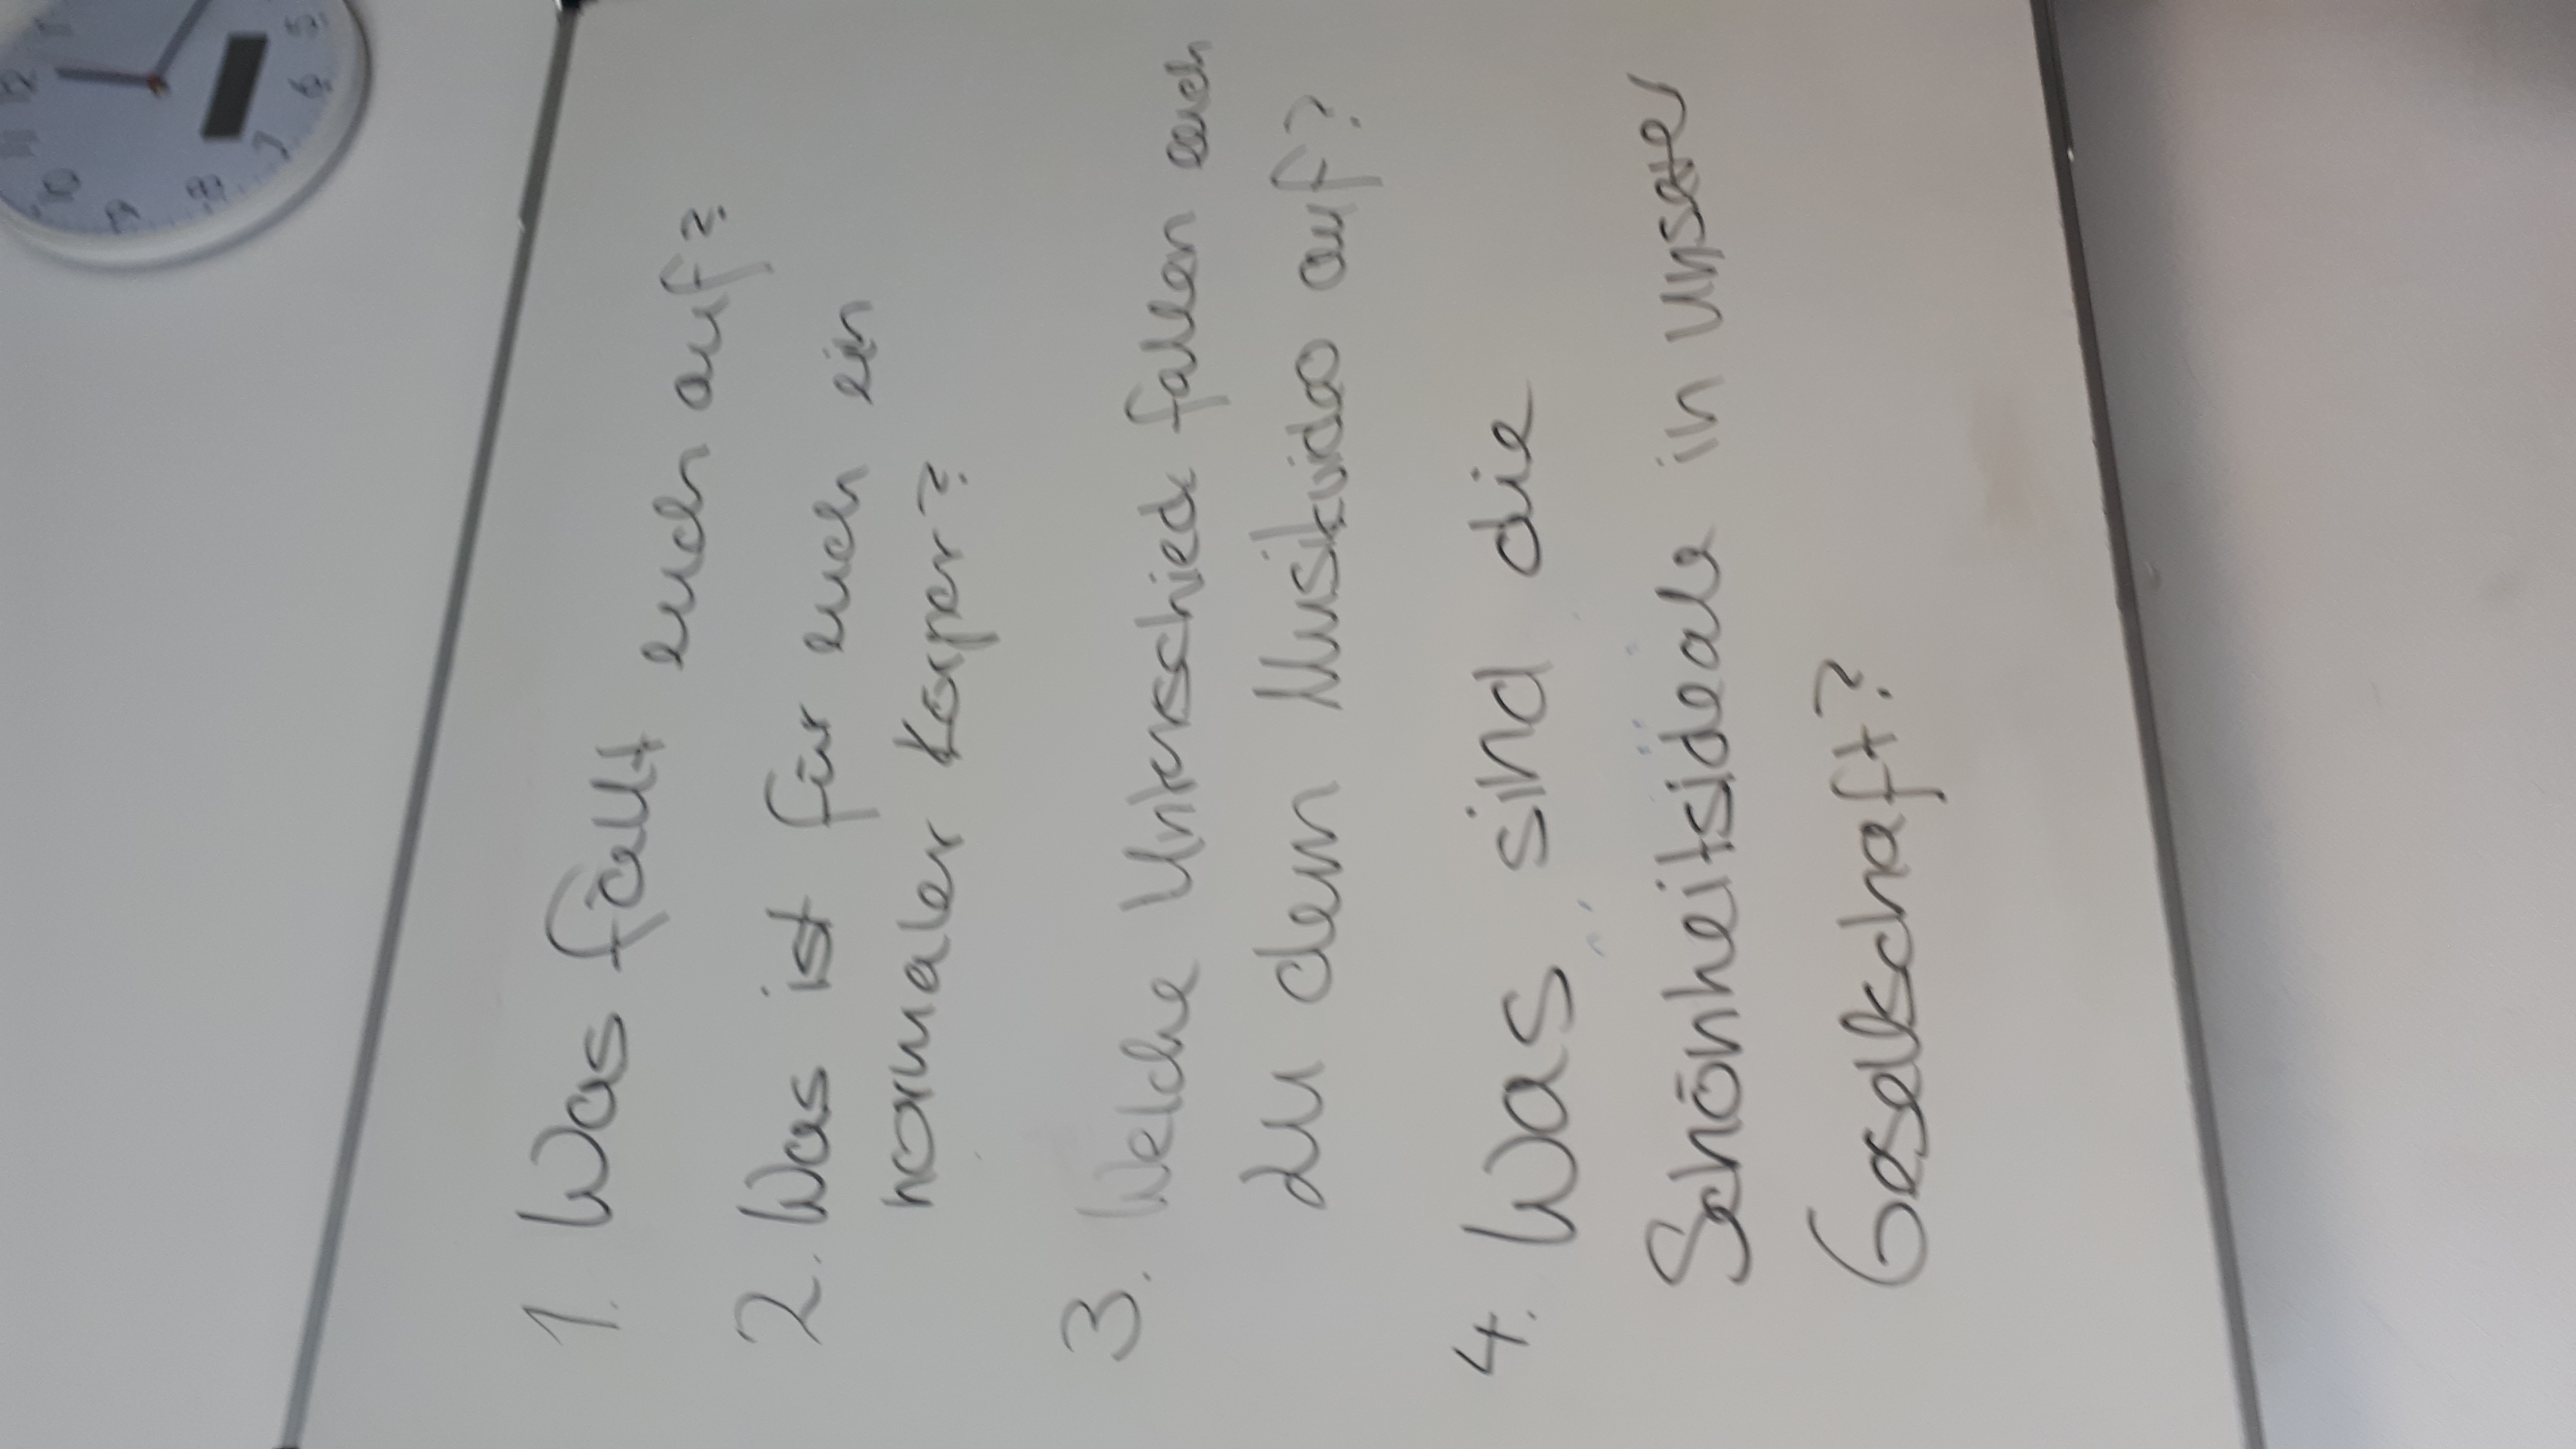 1. Was fällt euch auf?
2. Was ist für euch ein
normaler Körper?
3. Welche Unterschied fallen euch
zu dem Musikvideo auf?
4. Was sind die
Schönheitsideale in unserer
Gesellschaft?
12
1
5
6
7
8
9
10
11